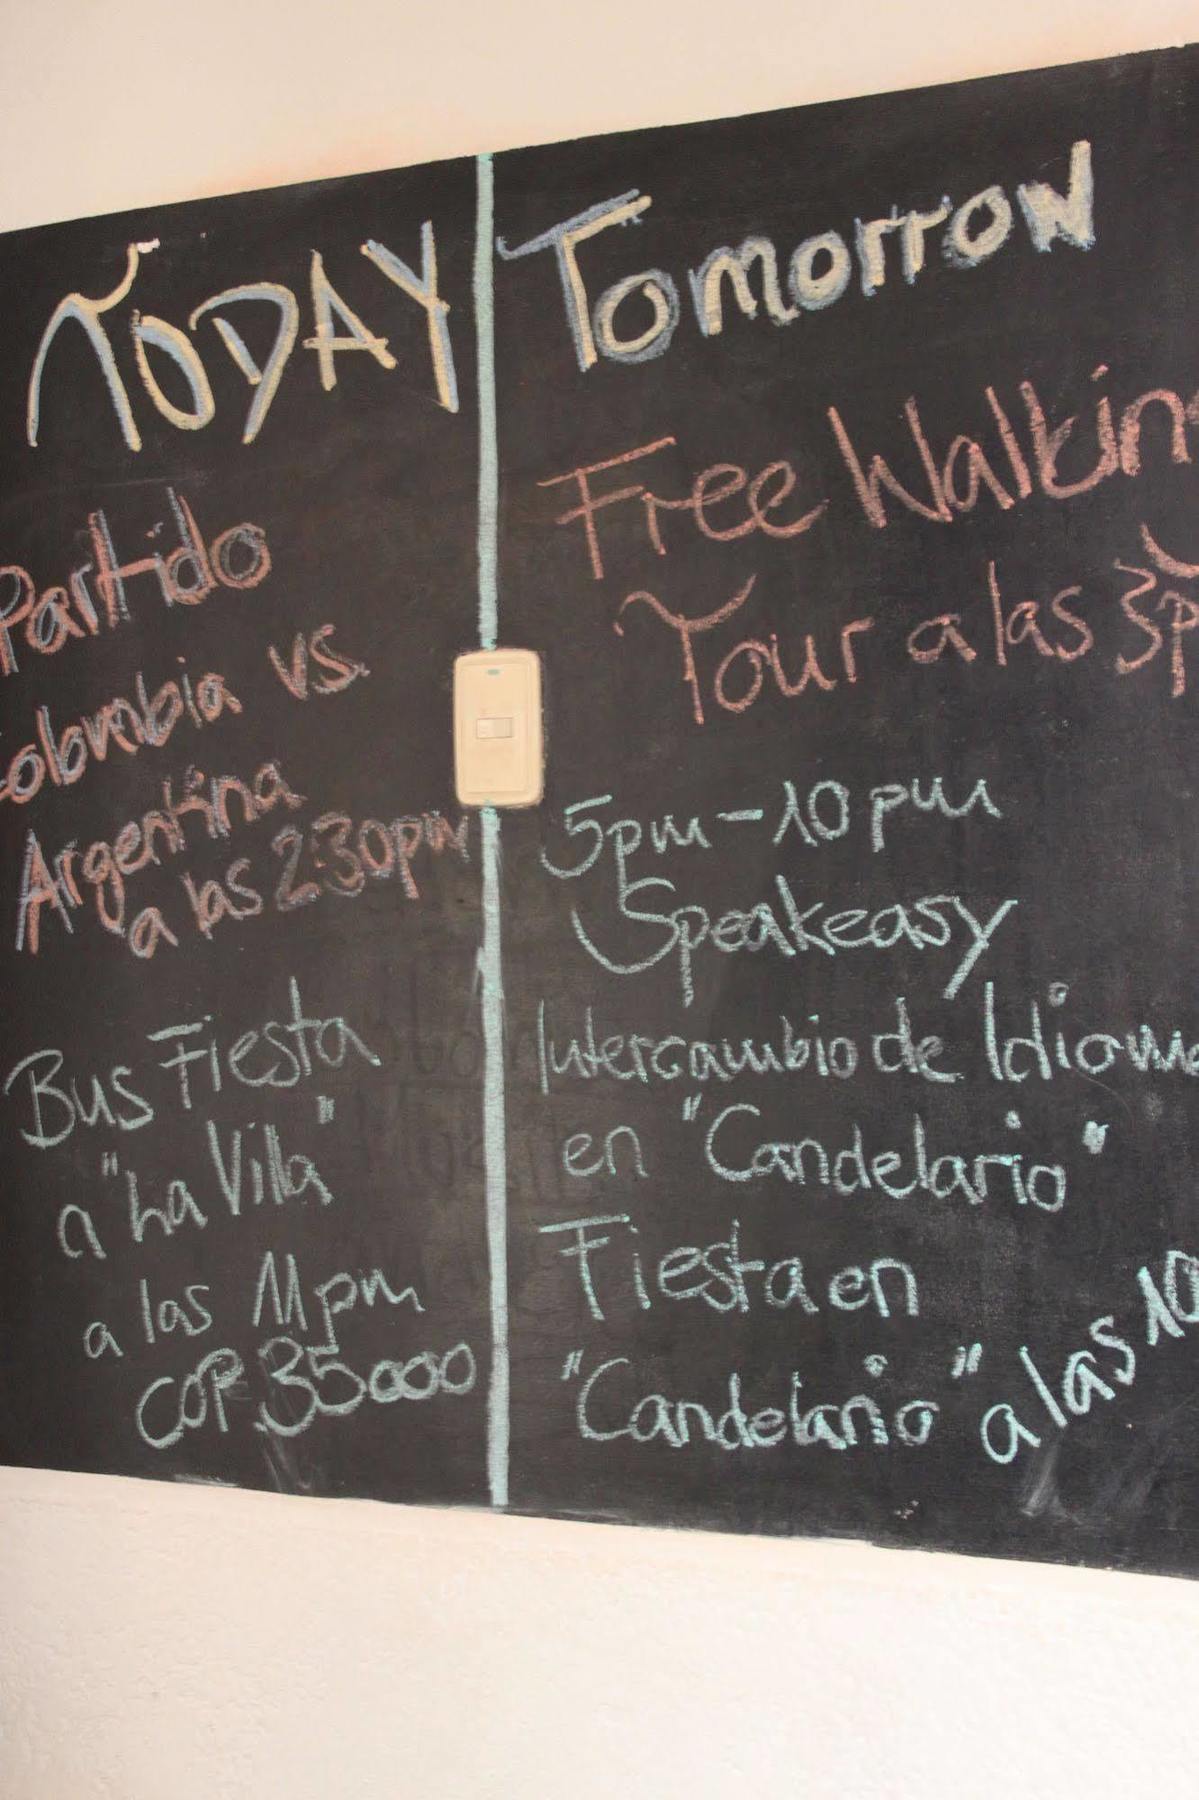 TODAY
Partido
Colombia vs.
Argentina
a las 2:30pm
Bus Fiesta
a "La Villa"
a las 11pm
COP. 35000
Tomorrow
Free Walkin
Tour a las 3p
5pm-10pm
Speakeasy
Intercambio de Idioma
en "Candelario"
Fiesta en
"Candelario" a las 10